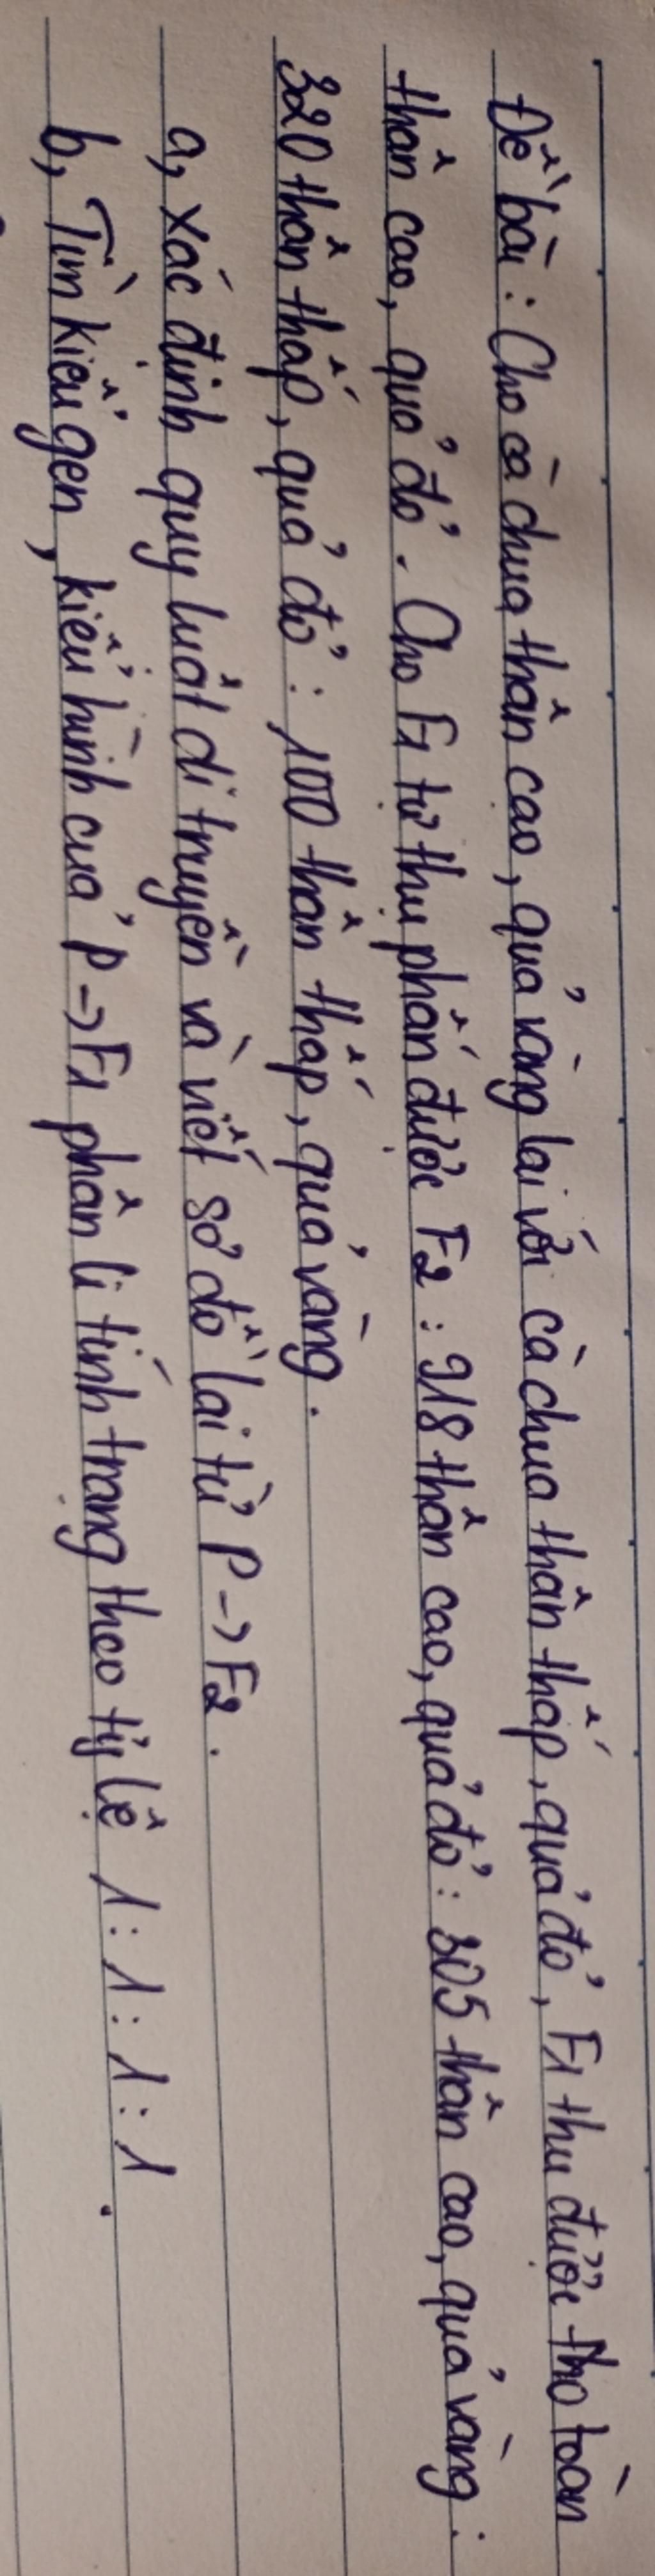 Đề bài: Cho cà chua thân cao, quả vàng lai với cà chua thân thấp, quả đỏ, F1 thu được tho toàn
thân cao, quả đỏ. Cho F1 tự thụ phấn được F2: 918 thân cao, quả đỏ: 305 thân cao, quả vàng:
320 thân thấp, quả đỏ: 100 thân thấp, quả vàng.
a, Xác định quy luật di truyền và viết sơ đồ lai từ P->F2.
b, Tìm kiểu gen, kiểu hình của P->F1 phân li tính trạng theo tỷ lệ 1:1:1:1.